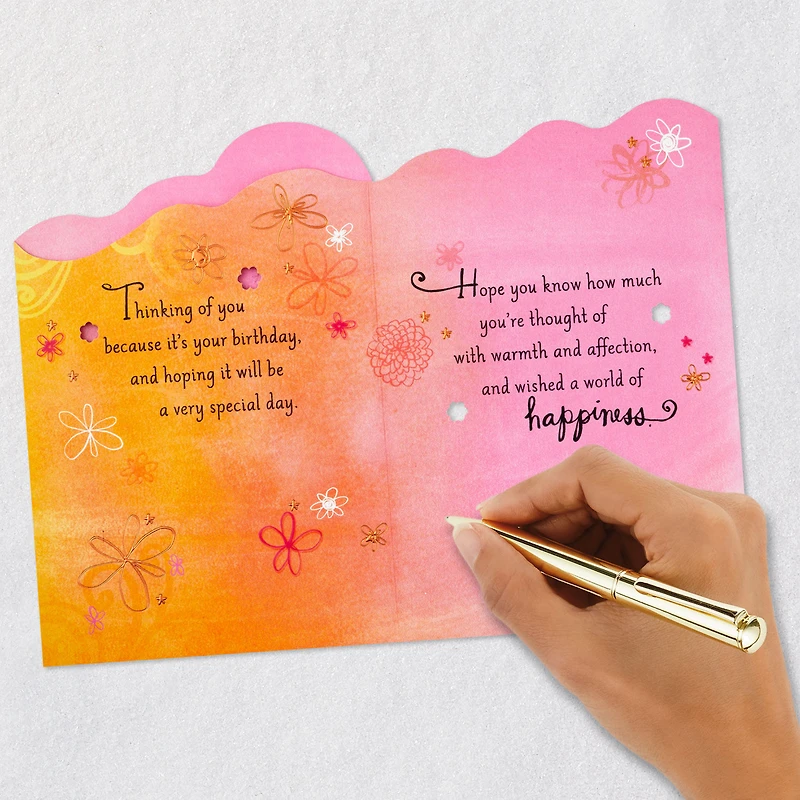 Thinking of you
because it's your birthday,
and hoping it will be
a very special day.
Hope you know how much
you're thought of
with warmth and affection,
and wished a world of
happiness.